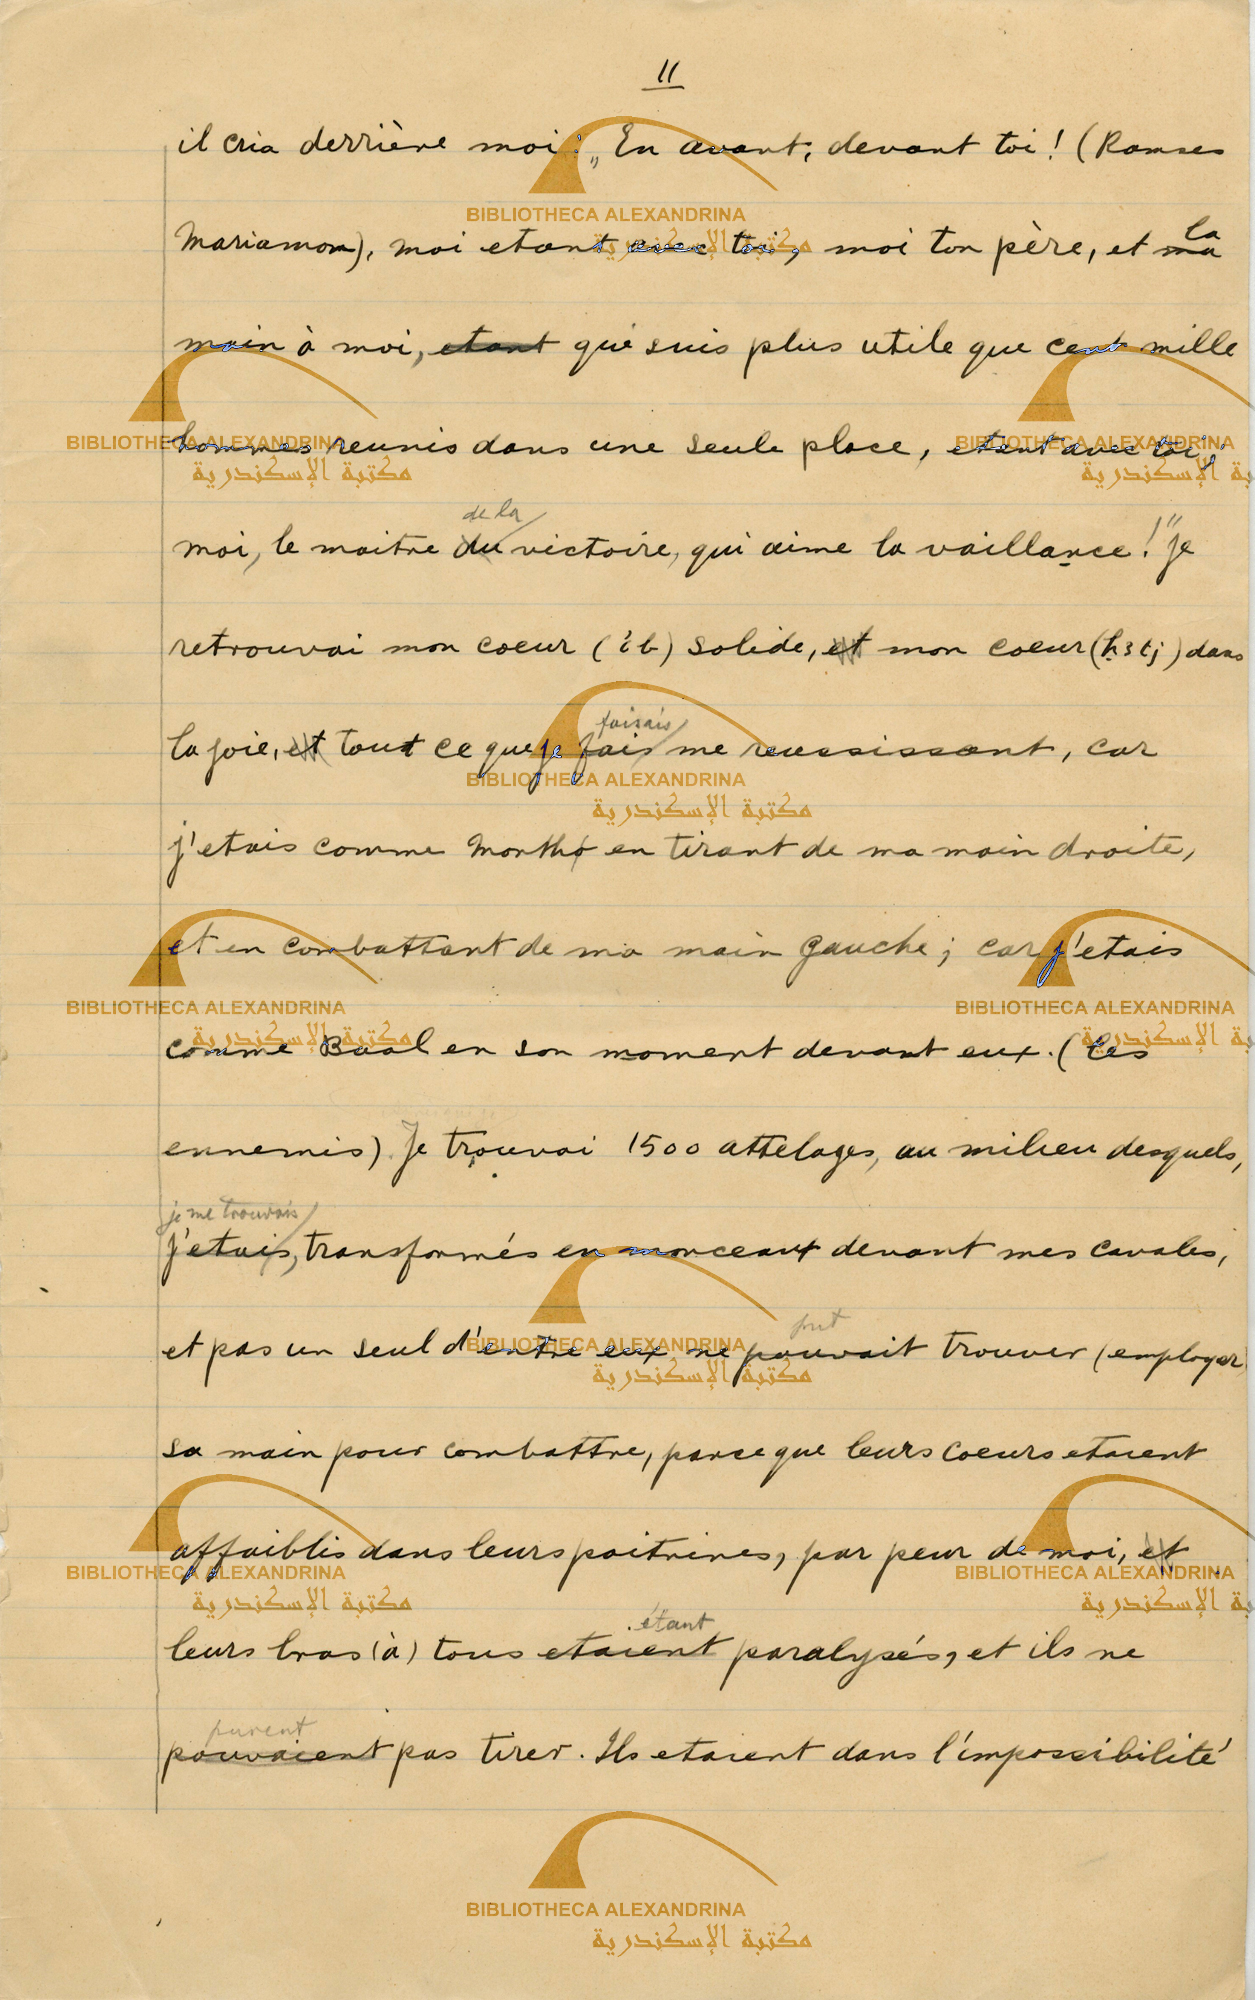 11
il cria derrière moi : „En avant, devant toi ! (Ramses
la
Mariamon), moi etant avec toi, moi ton père, et ma
main à moi, etant qui suis plus utile que cent mille
hommes reunis dans une seule place, etant avec toi,
de la
moi, le maitre du victoire, qui aime la vaillance !" Je
retrouvai mon coeur (ib) solide, et mon coeur (h3tj) dans
faisais
la joie, et tout ce que je fais me reussissant, car
j'etais comme Month en tirant de ma main droite,
et en combattant de ma main gauche ; car j'etais
comme Baal en son moment devant eux. (les
ennemis) Je trouvai 1500 attelages, au milieu desquels,
je me trouvais
j'etais, transformés en monceaux devant mes cavales,
put
et pas un seul d'entre eux ne pouvait trouver (employer
sa main pour combattre, parceque leurs coeurs etaient
affaiblis dans leurs poitrines, par peur de moi, et
étant
leurs bras (à) tous etaient paralysés, et ils ne
purent
pouvaient pas tirer. Ils etaient dans l'impossibilité
BIBLIOTHECA ALEXANDRINA
مكتبة الإسكندرية